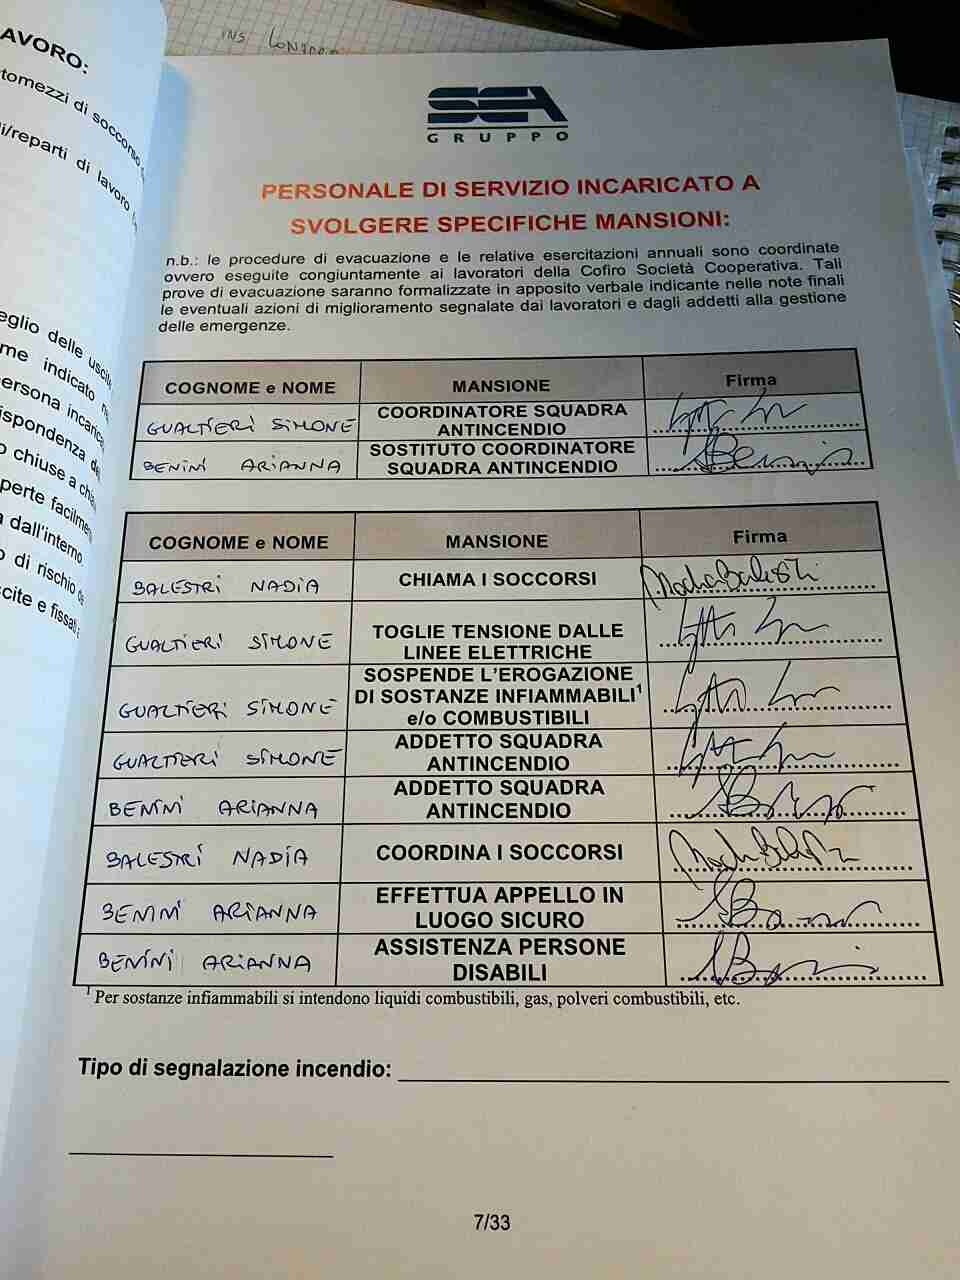 INS
AVORO:
tomezzi di soccorso
i/reparti di lavoro
eglio delle uscite
me indicato
ersona incaric
spondenza de
o chiuse a chia
perte facilme
dall'interno
o di rischio
cite e fissati
SEA
GRUPPO
PERSONALE DI SERVIZIO INCARICATO A
SVOLGERE SPECIFICHE MANSIONI:
n.b.: le procedure di evacuazione e le relative esercitazioni annuali sono coordinate
ovvero eseguite congiuntamente ai lavoratori della Cofiro Società Cooperativa. Tali
prove di evacuazione saranno formalizzate in apposito verbale indicante nelle note finali
le eventuali azioni di miglioramento segnalate dai lavoratori e dagli addetti alla gestione
delle emergenze.
COGNOME e NOME MANSIONE Firma
GUALTIERI SIMONE COORDINATORE SQUADRA
ANTINCENDIO
BENINI ARIANNA SOSTITUTO COORDINATORE
SQUADRA ANTINCENDIO
COGNOME e NOME MANSIONE Firma
BALESTRI NADIA CHIAMA I SOCCORSI
GUALTIERI SIMONE TOGLIE TENSIONE DALLE
LINEE ELETTRICHE
GUALTIERI SIMONE SOSPENDE L'EROGAZIONE
DI SOSTANZE INFIAMMABILI¹
e/o COMBUSTIBILI
GUALTIERI SIMONE ADDETTO SQUADRA
ANTINCENDIO
BENINI ARIANNA ADDETTO SQUADRA
ANTINCENDIO
BALESTRI NADIA COORDINA I SOCCORSI
BENINI ARIANNA EFFETTUA APPELLO IN
LUOGO SICURO
BENINI ARIANNA ASSISTENZA PERSONE
DISABILI
¹ Per sostanze infiammabili si intendono liquidi combustibili, gas, polveri combustibili, etc.
Tipo di segnalazione incendio:
7/33